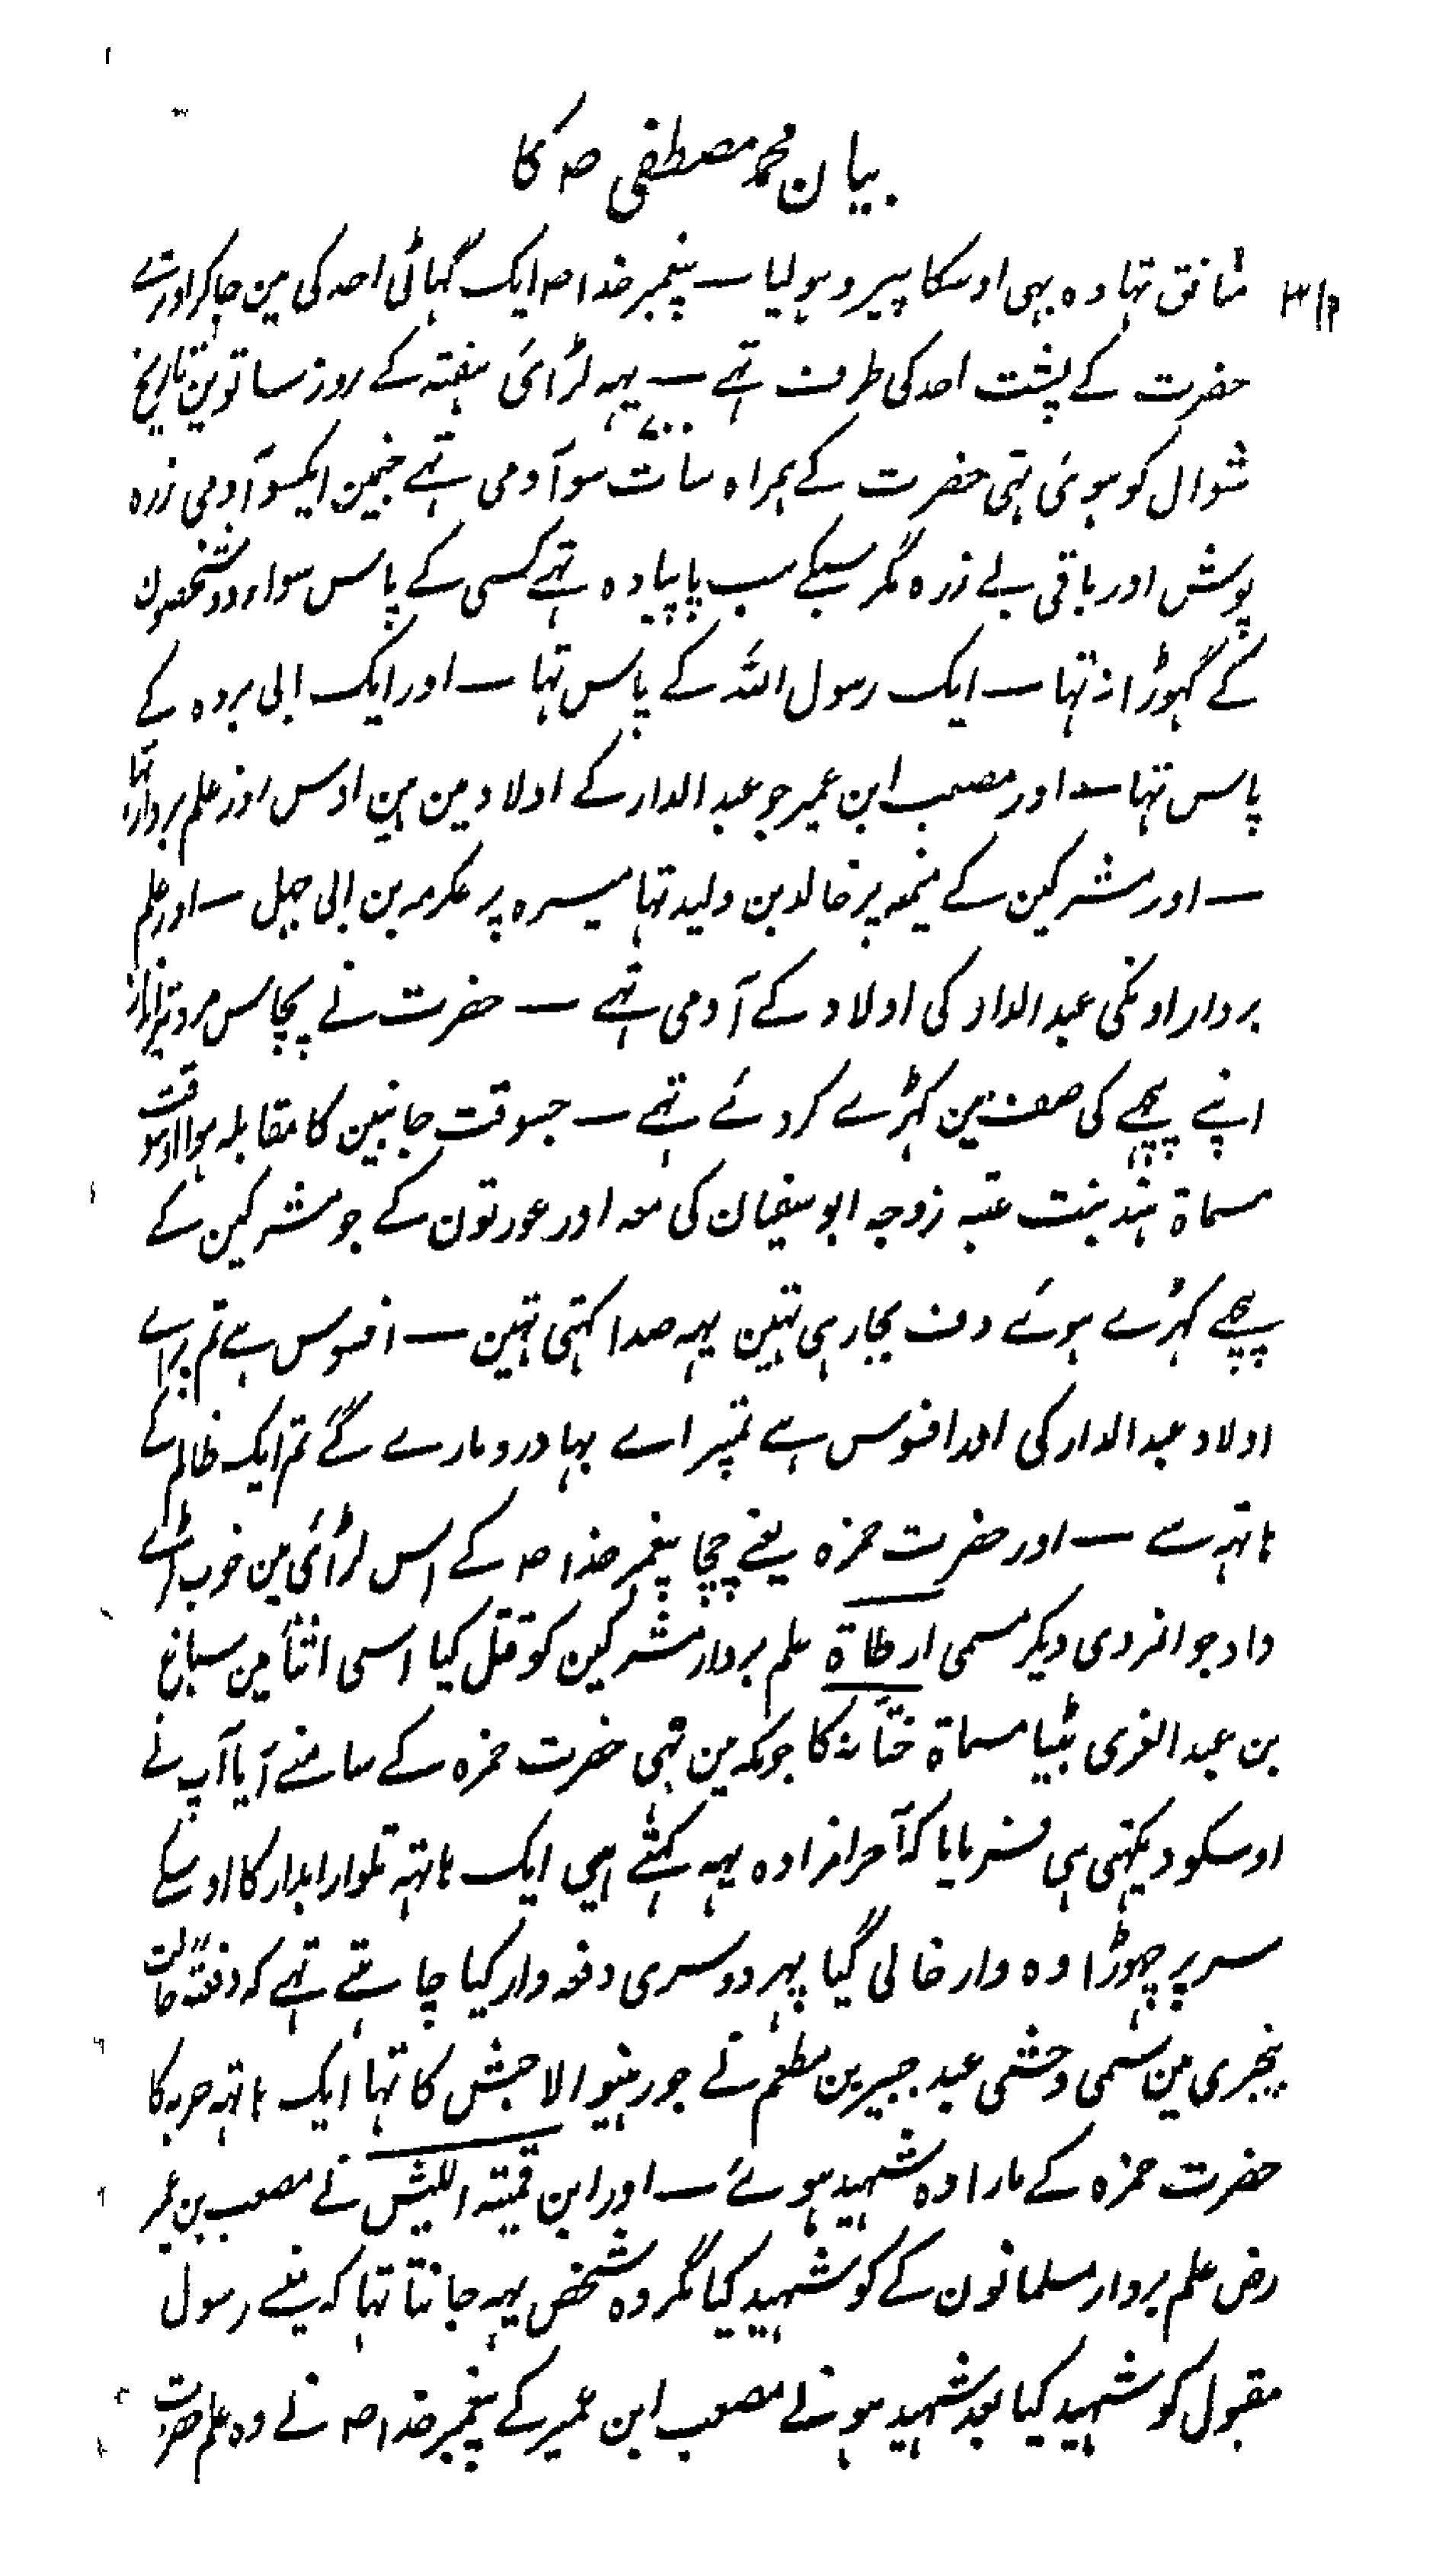 بیان محمد مصطفی ص کا
منافق تہا وہ بہی اوسکا پیرو ہو لیا — پیغمبر خدا ص ایک گہاٹی احد کی مین جا کر اوترے
حضرت کے پشت احد کی طرف تہے — یہہ لڑائی ہفتہ کے روز ساتوین تاریخ
شوال کو ہوئی تہی حضرت کے ہمراہ سات سو آدمی تہے جنمین ایکسو آدمی زرہ
۷۰۰
پوش اور باقی بے زرہ مگر سبکے سب پاپیادہ تہے کسی کے پاس سوا دو شخصون
کے گہوڑا نہ تہا — ایک رسول اللہ کے پاس تہا — اور ایک ابی بردہ کے
پاس تہا — اور مصعب ابن عمیر جو عبد الدار کے اولاد مین ہین اوس روز علم بردار تہا
— اور مشرکین کے میمنہ پر خالد بن ولید تہا میسرہ پر عکرمہ بن ابی جہل — اور علم
بردار اونکی عبد الدار کی اولاد کے آدمی تہے — حضرت نے پچاس مرد تیر انداز
اپنے پیچہے کی صف مین کہڑے کر دئے تہے — جسوقت جانبین کا مقابلہ ہوا اوسوقت
مسماة ہند بنت عتبہ زوجہ ابو سفیان کی معہ اور عورتون کے جو مشرکین کے
پیچہے کہڑے ہوئے دف بجا رہی تہین یہہ صدا کہتی تہین — افسوس ہے تم پر اے
اولاد عبد الدار کی اور افسوس ہے تمپر اے بہادرو مارے گے تم ایک ظالم کے
ہاتہہ سے — اور حضرت حمزہ یعنے چچا پیغمبر خدا ص کے اس لڑائی مین خوب لڑے
داد جوانمردی دیکر مسمی ارطاة علم بردار مشرکین کو قتل کیا اسی اثنا مین سباع
بن عبد العزی بیٹا مسماة ختانہ کا جو مکہ مین تہی حضرت حمزہ کے سامنے آیا آپ نے
اوسکو دیکہتی ہی فرمایا کہ آ حرامزادہ یہہ کہتے ہی ایک ہاتہہ تلوار ابدار کا اوسکے
سر پر چہوڑا وہ وار خالی گیا پہر دوسری دفعہ وار کیا چاہتے تہے کہ دفعتہ حالت
بیخبری مین مسمی وحشی عبد جبیر بن مطعم نے جو رہنیوالا حبش کا تہا ایک ہاتہہ حربہ کا
حضرت حمزہ کے مارا وہ شہید ہوئے — اور ابن قمیتہ اللیثی نے مصعب بن عمیر
رض علم بردار مسلمانون کے کو شہید کیا مگر وہ شخص یہہ جانتا تہا کہ مینے رسول
مقبول کو شہید کیا بعد شہید ہونے مصعب ابن عمیر کے پیغمبر خدا ص نے وہ علم حضرت